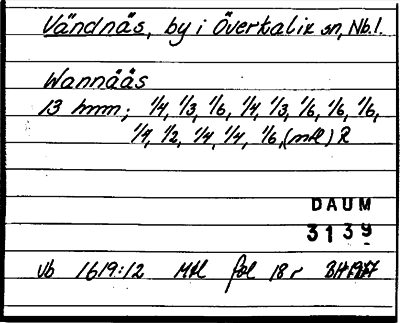 Vändnäs, by i Överkalix sn, Nb.l.
Wannåås
13 hmn; 1/4, 1/3, 1/6, 1/4, 1/3, 1/6, 1/6, 1/6,
1/4, 1/2, 1/4, 1/4, 1/6, (mtl) R
DAUM
3139
Vb 1619:12 Mtl fol 18r BH 1957